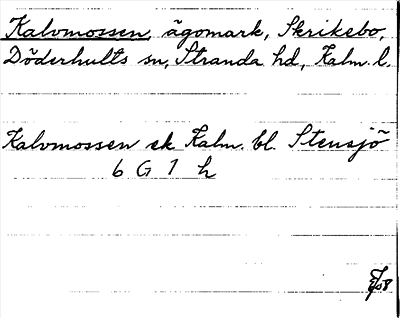 Kalvmossen, ägomark, Skrikebo,
Döderhults sn, Stranda hd, Kalm. l.
Kalvmossen ek Kalm. bl. Stensjö
6 G 1 h